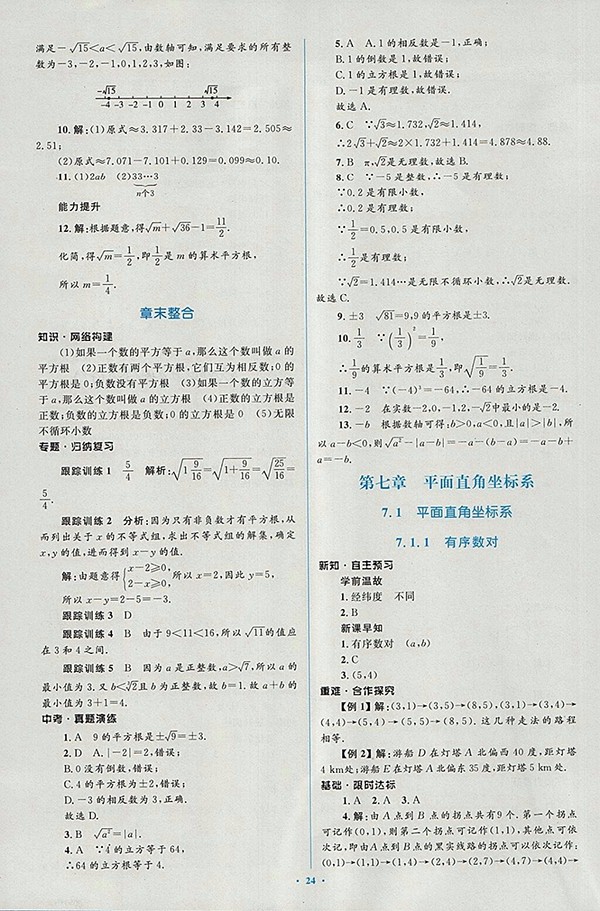 满足-√15<a<√15,由数轴可知,满足要求的所有整
数为-3,-2,-1,0,1,2,3,如图:
-√15 √15
-4 -3 -2 -1 0 1 2 3 4
10. 解:(1)原式≈3.317+2.33-3.142=2.505≈
2.51;
(2)原式≈7.071-7.101+0.129=0.099≈0.10.
11. (1)2ab (2)33…3
n个3
能力提升
12. 解:根据题意,得√m+√36-1=11/2.
化简,得√m=1/2,即1/2是 m 的算术平方根,
所以 m=1/4.
章末整合
知识·网络构建
(1)如果一个数的平方等于 a,那么这个数叫做 a 的
平方根 (2)正数有两个平方根,它们互为相反数;0 的
平方根是 0;负数没有平方根 (3)如果一个数的立方等
于 a,那么这个数叫做 a 的立方根 (4)正数的立方根是
正数;负数的立方根是负数;0 的立方根是 0 (5)无限
不循环小数
专题·归纳复习
跟踪训练 1 5/4 解析:√(1 9/16)=√(1+9/16)=√(25/16)=
5/4.
跟踪训练 2 分析:因为只有非负数才有平方根,从
而列出关于 x 的不等式组,求出不等式组的解集,确定
x,y 的值,进而得到 x-y 的值.
解:由题意得{x-2≥0, 2-x≥0, 所以 x=2,因此 y=5,
所以 x-y=2-5=-3.
跟踪训练 3 D
跟踪训练 4 B 由于 9<11<16,所以√11的值应
在 3 和 4 之间.
跟踪训练 5 B 因为 a 是正整数,a>√7,所以 a 的
最小值为 3.又 b<∛2且 b 为正整数,故 b=1.故 a+b 的
最小值为 3+1=4.
中考·真题演练
1. A 9 的平方根是±√9=±3.
2. D A. |-2|=2,错误;
B. 0 没有倒数,错误;
C. 4 的平方根为±2,错误;
D. -3 的相反数为 3,正确.
故选 D.
3. B √a²=|a|.
4. A ∵4 的立方等于 64,
∴64 的立方根等于 4.
5. A A. 1 的相反数是-1,正确;
B. 1 的倒数是 1,故错误;
C. 1 的立方根是 1,故错误;
D. -1 是有理数,故错误.
故选 A.
6. C ∵√3≈1.732,√2≈1.414,
∴2√3+√2≈2×1.732+1.414=4.878≈4.88.
7. B π,√2是无理数,故选 B.
8. C ∵-5 是整数,∴-5 是有理数;
∵0.2 是有限小数,
∴0.2 是有理数;
∵1/2=0.5,0.5 是有限小数,
∴1/2是有理数;
∵√2=1.414…是无限不循环小数,∴√2是无理数.
故选 C.
9. ±3 √81=9,9 的平方根是±3.
10. 1/3 ∵(1/3)²=1/9,
∴1/9的算术平方根是1/3,即√(1/9)=1/3.
11. -4 ∵(-4)³=-64,∴-64 的立方根是-4.
12. -2 在实数-2,0,-1,2,-√2中最小的是-2.
13. -b 根据数轴可得:b>0,a<0,且|a|>|b|,所
以 a-b<0,则√a²-|a-b|=-a-(b-a)=-a-b+
a=-b.
第七章 平面直角坐标系
7.1 平面直角坐标系
7.1.1 有序数对
新知·自主预习
学前温故
1. 经纬度 不同
2. B
新课早知
1. 有序数对 (a,b)
2. C
3. (5,4)
重难·合作探究
【例 1】解:(3,1)→(3,5)→(8,5),(3,1)→(3,4)→
(4,4)→(5,4)→(5,5)→(8,5).这几种走法的路程
相等.
【例 2】解:游船 D 在灯塔 A 北偏西 40 度,距灯塔
4 km 处;游船 E 在灯塔 A 北偏东 35 度,距灯塔 5 km 处.
基础·限时达标
1. A 2. A 3. A
4. 解:由 A 点到 B 点的拐点共有 9 个.第一个拐点
可记作(0,1),则第二个拐点可记作(1,1),其他点可依
次记,即由点 A 到点 B 的黑实线路的拐点可以依次记作:
(0,1)→(1,1)→(1,2)→(2,2)→(2,7)→(4,7)→(4,4)→
24